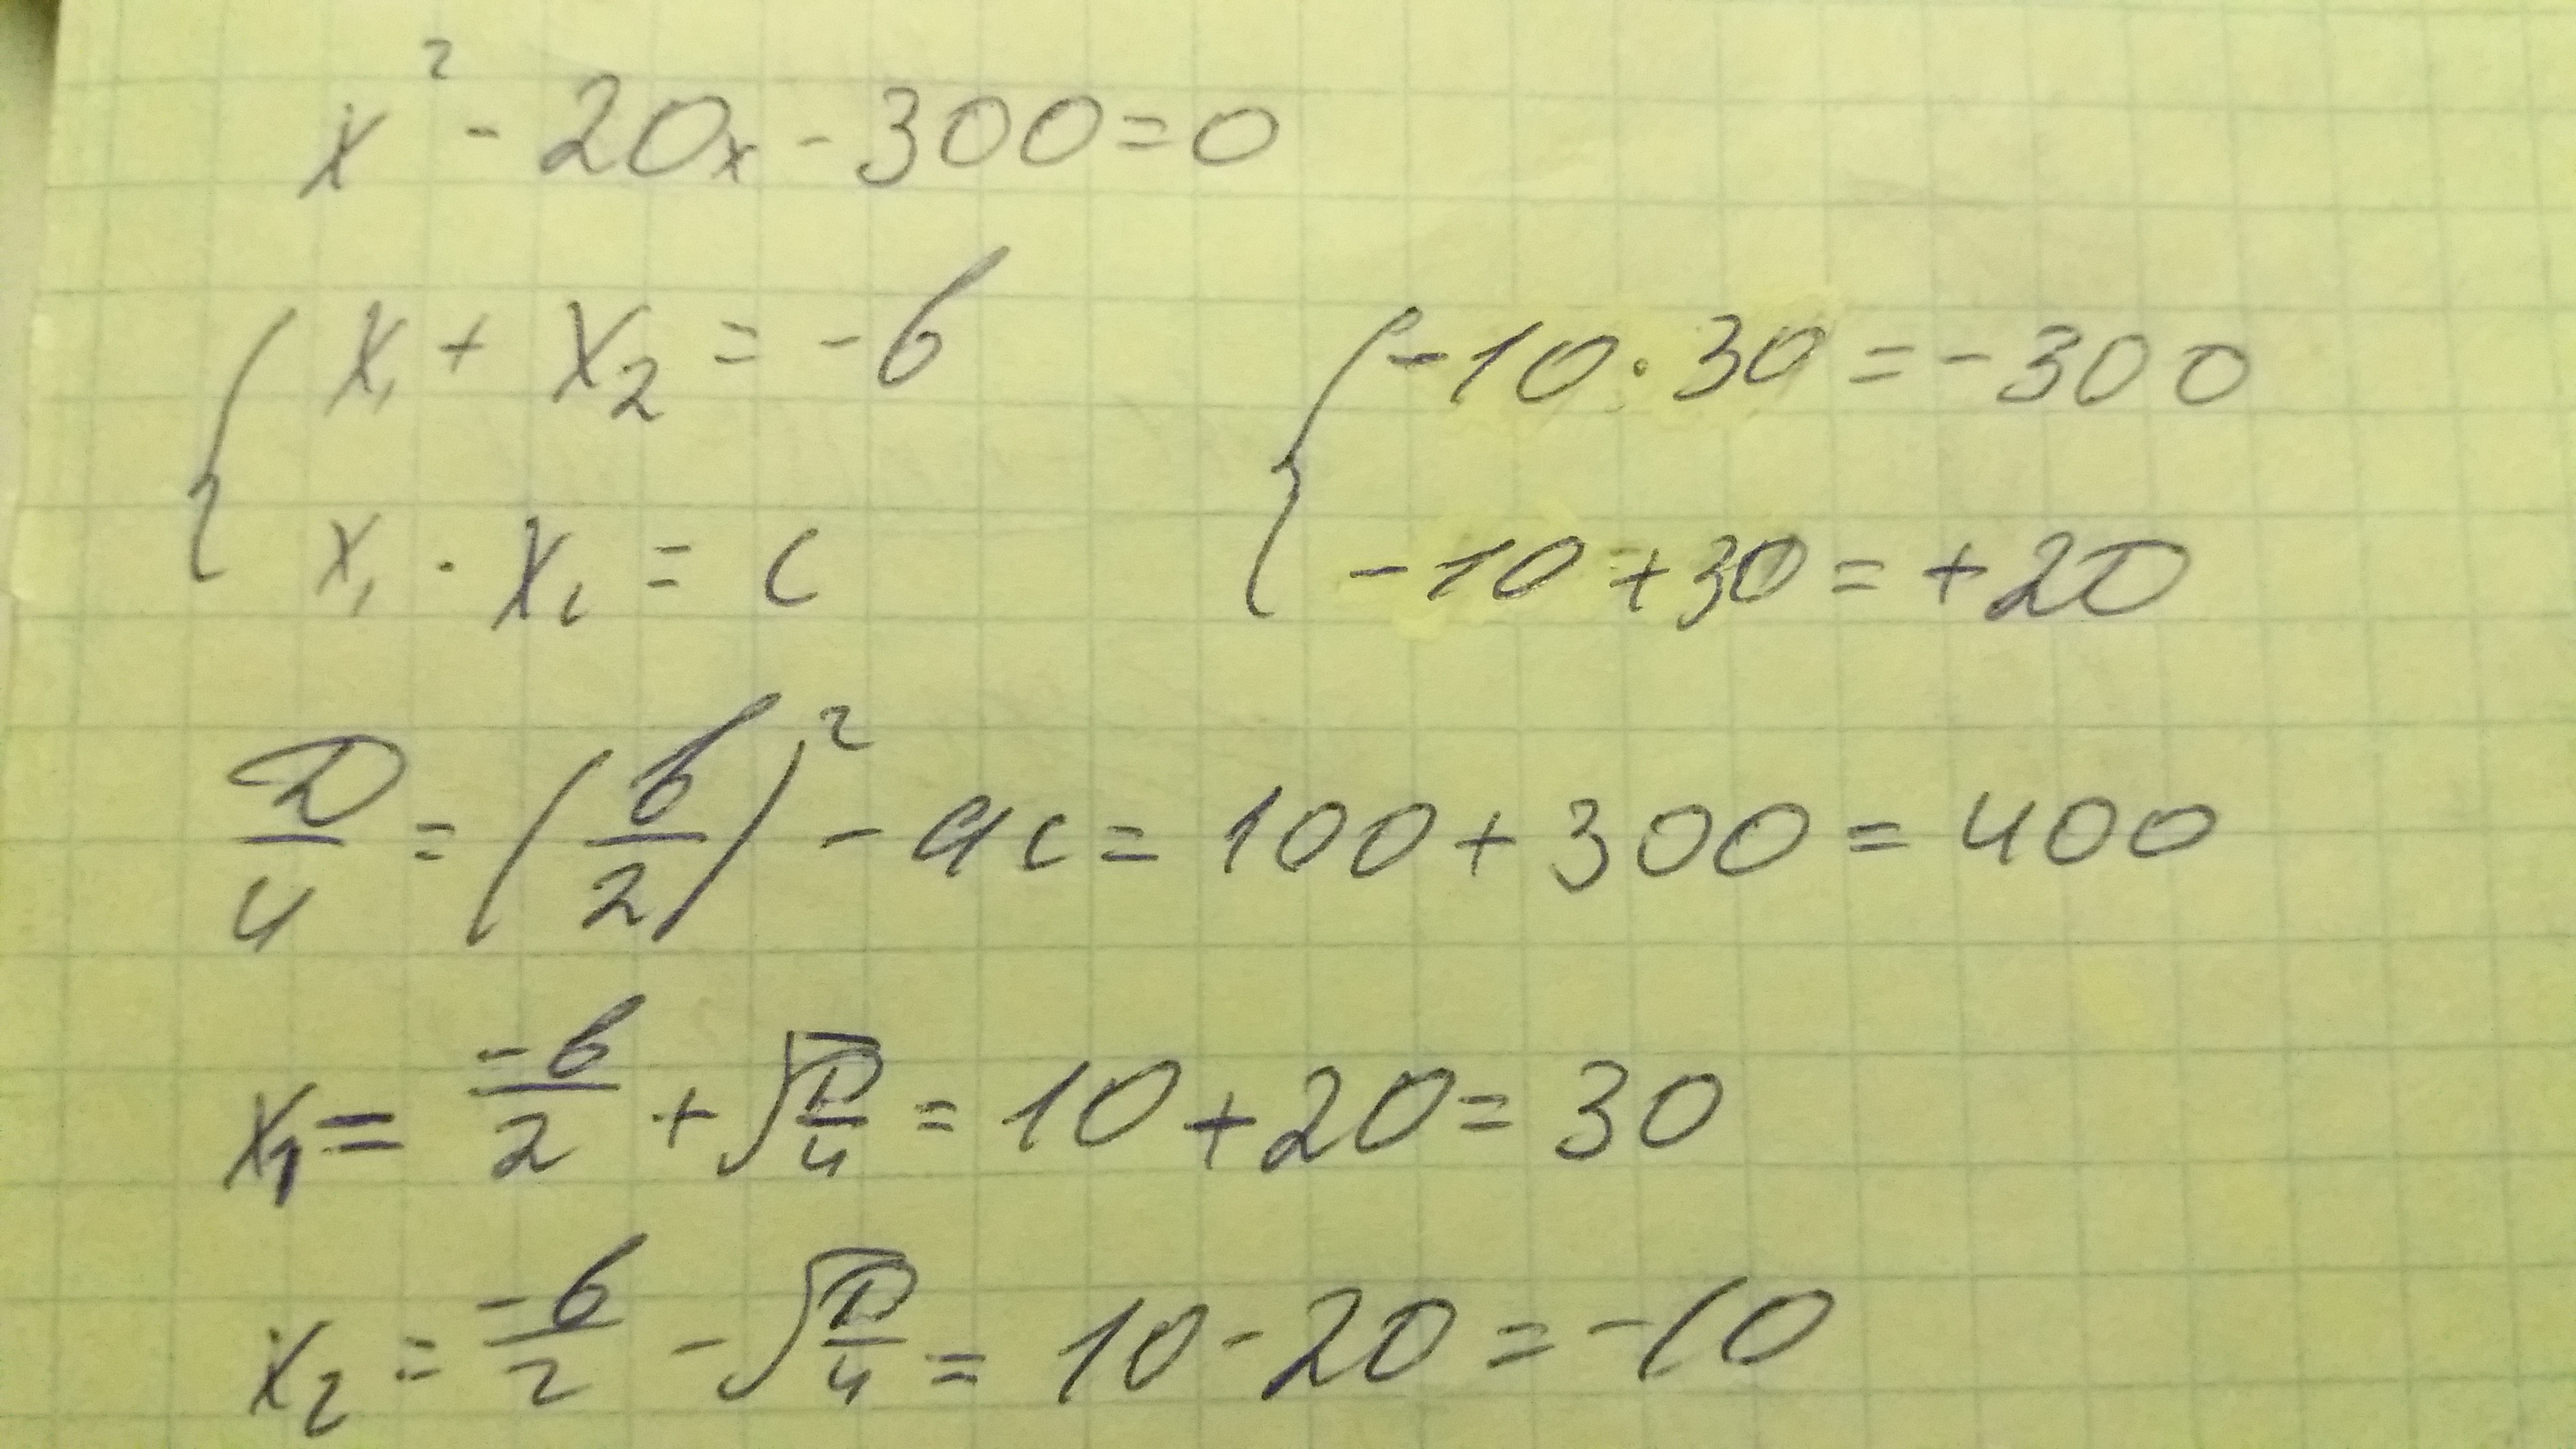 x² - 20x - 300 = 0
{ x₁ + x₂ = -b
x₁ · x₂ = c
{ -10 · 30 = -300
-10 + 30 = +20
D/4 = (b/2)² - ac = 100 + 300 = 400
x₁ = -b/2 + √(D/4) = 10 + 20 = 30
x₂ = -b/2 - √(D/4) = 10 - 20 = -10